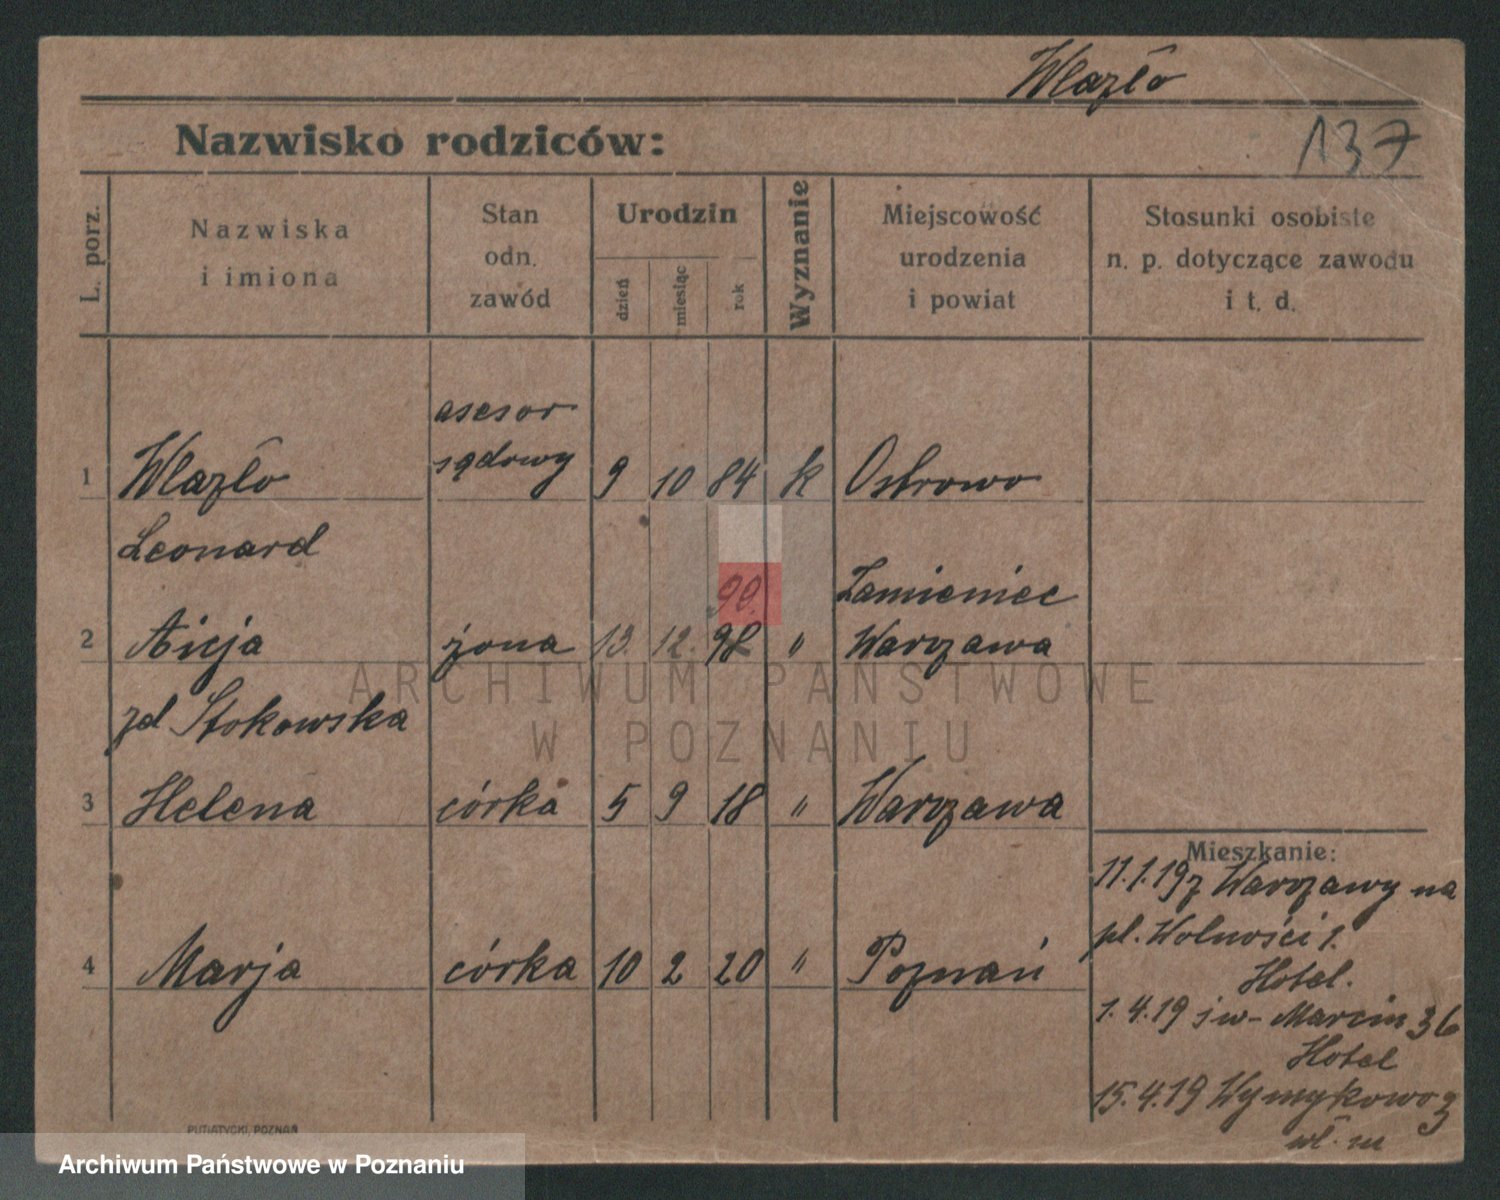 Wlazło
Nazwisko rodziców:
137
L. porz.
Nazwiska
i imiona
Stan
odn.
zawód
Urodzin
dzień
miesiąc
rok
Wyznanie
Miejscowość
urodzenia
i powiat
Stosunki osobiste
n. p. dotyczące zawodu
i t. d.
asesor
1 Wlazło sądowy 9 10 84 k Ostrowo
Leonard
90. Kamieniec
2 Alicja żona 13. 12. 98 " Warszawa
zd Stokowska
3 Helena córka 5 9 18 " Warszawa
Mieszkanie:
11.1.19 z Warszawy na
pl. Wolności 1.
4 Marja córka 10 2 20 " Poznań
Hotel.
1.4.19 św- Marcin 36
Hotel
15.4.19
wł. m
PUTIATYCKI, POZNAŃ
ARCHIWUM PAŃSTWOWE
W POZNANIU
Archiwum Państwowe w Poznaniu